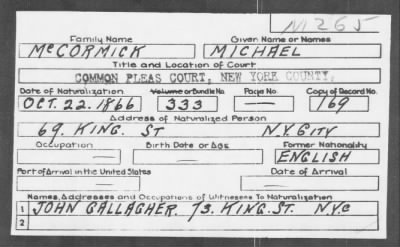 M265
Family Name Given Name or Names
McCORMICK MICHAEL
Title and Location of Court
COMMON PLEAS COURT, NEW YORK COUNTY.
Date of Naturalization Volume or Bundle No. Page No. Copy of Record No.
OCT. 22. 1866 333 — 169
Address of Naturalized Person
69. KING. ST N.Y. CITY
Occupation Birth Date or Age Former Nationality
— — ENGLISH
Port of Arrival in the United States Date of Arrival
— —
Names, Addresses and Occupations of Witnesses To Naturalization
1 JOHN GALLAGHER. 73. KING. ST. NYC
2